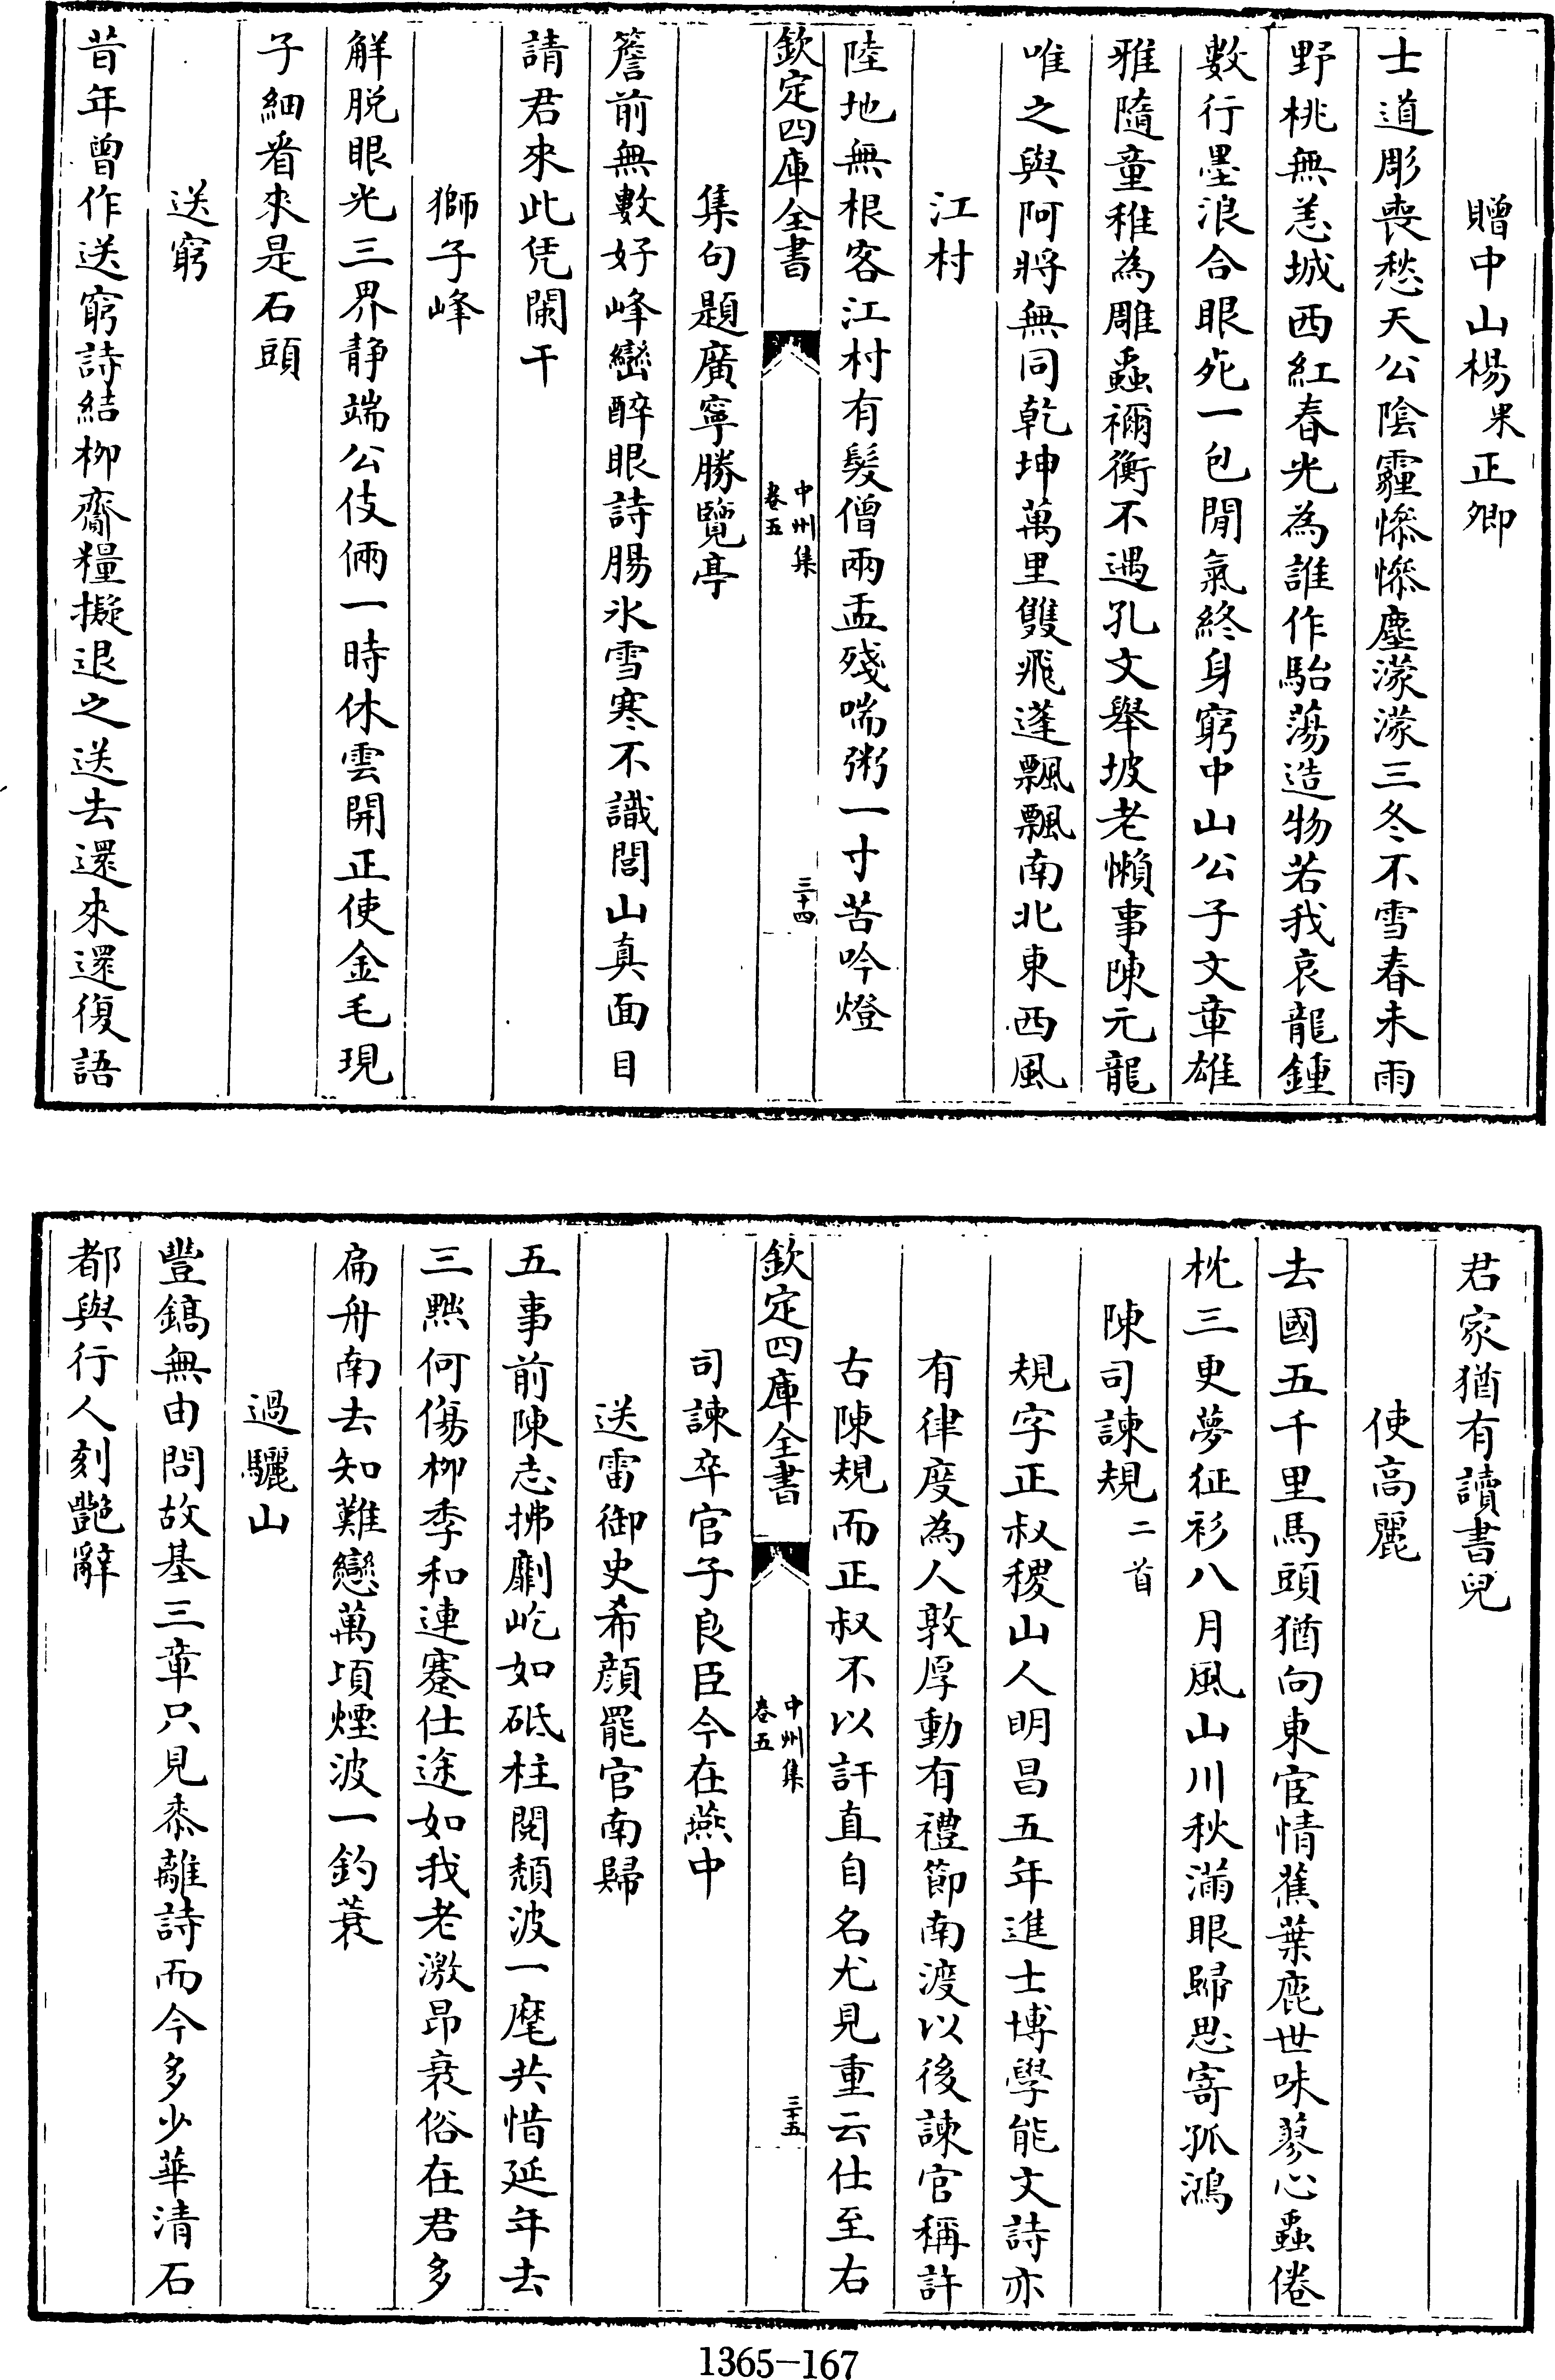 贈中山楊果正卿
士道彫喪愁天公陰霾慘慘塵濛濛三冬不雪春未雨
野桃無恙城西紅春光為誰作駘蕩造物若我哀龍鍾
數行墨浪合眼死一包閒氣終身窮中山公子文章雄
雅隨童稚為雕蟲禰衡不遇孔文舉坡老懶事陳元龍
唯之與阿將無同乾坤萬里雙飛蓬飄飄南北東西風
江村
陸地無根客江村有髮僧兩盂殘喘粥一寸苦吟燈
欽定四庫全書
中州集
卷五
三十四
集句題廣寧勝覽亭
簷前無數好峰巒醉眼詩腸氷雪寒不識閭山真面目
請君來此凭闌干
獅子峰
觧脱眼光三界静端公伎倆一時休雲開正使金毛現
子細看來是石頭
送窮
昔年曾作送窮詩結栁齎糧擬退之送去還來還復語
君家猶有讀書兒
使高麗
去國五千里馬頭猶向東宦情蕉葉鹿世味蓼心蟲倦
枕三更夢征衫八月風山川秋滿眼歸思寄孤鴻
陳司諫規二首
規字正叔稷山人明昌五年進士博學能文詩亦
有律度為人敦厚動有禮節南渡以後諫官稱許
古陳規而正叔不以訐直自名尤見重云仕至右
欽定四庫全書
中州集
卷五
三十五
司諫卒官子良臣今在燕中
送雷御史希顔罷官南歸
五事前陳志拂劘屹如砥柱閱頽波一麾共惜延年去
三㸃何傷栁季和連蹇仕途如我老激昂衰俗在君多
扁舟南去知難戀萬頃煙波一釣蓑
過驪山
豐鎬無由問故基三章只見黍離詩而今多少華清石
都與行人刻艷辭
1365-167